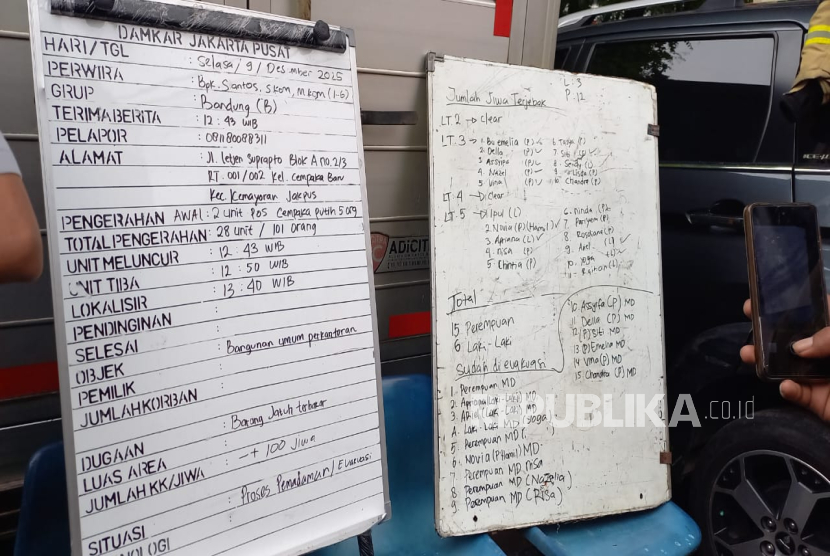 DAMKAR JAKARTA PUSAT
HARI/TGL : Selasa / 9 / Desember 2025
PERWIRA : Bpk. Santos, S.kom, M.kom (1-6)
GRUP : Bandung (B)
TERIMA BERITA : 12 : 43 WIB
PELAPOR : 08118008311
ALAMAT : Jl. Letjen Suprapto Blok A no. 2/3
RT. 001/002 Kel. Cempaka Baru
Kec. Kemayoran Jakpus
PENGERAHAN AWAL : 2 Unit Pos Cempaka Putih 5 org
TOTAL PENGERAHAN : 28 unit / 101 orang
UNIT MELUNCUR : 12 - 43 WIB
UNIT TIBA : 12 : 50 WIB
LOKALISIR : 13 : 40 WIB
PENDINGINAN :
SELESAI :
OBJEK : Bangunan umum perkantoran
PEMILIK :
JUMLAH KORBAN :
DUGAAN : Barang Jatuh terbakar
LUAS AREA :
JUMLAH KK/JIWA : -+ 100 Jiwa
SITUASI : Proses Pemadaman / Evakuasi
NOLOGI
ADICIT
L : 3
P : 12
Jumlah Jiwa Terjebak
LT 2 → Clear
LT. 3 → 1. Bu emelia (P) 6.
2. Della (P) ✓ 7. Siti (P) ✓
3. Assyifa (P) 8. Sendy (L)
4. Nazel (P) 9. Lisda (P)
5. Vina (P) ✓ 10. Chandra (P)
LT 4 → Clear
LT. 5 → 1. Ipul (L) 6. Ninda (P)
2. Novia (P) (Hamil) ✓ 7. Pariyem (P)
3. Apriana (L) ✓ 8. Rosdiana (P)
4. nisa (P) 9. Ariel (L) ✓
5 Chintia (P) 10. Yoga (L)
Total
15 Perempuan
6 Laki-Laki
Sudah di evakuasi
1. Perempuan MD
2. Apriana (Laki-Laki) MD
3. (Laki-Laki) MD
4. Laki-Laki MD (Yoga)
5 Perempuan MD
6 Novia (P Hamil) MD
7 Perempuan MD nisa
8 Perempuan MD (Nazalia)
9 Perempuan MD (Risa)
10 Assyifa (P) MD
11 Della (P) MD
12 (P) Siti MD
13 (P) Emelia MD
14 Vina (P) MD
15 Chandra (P) MD
REPUBLIKA.co.id